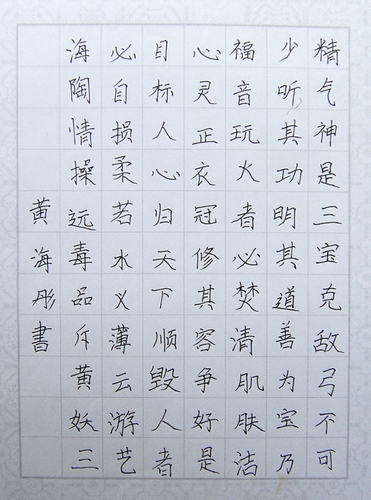 精气神是三宝克敌弓不可
少听其功明其道善为宝乃
福音玩火者必焚清肌肤洁
心灵正衣冠修其容争好是
目标人心归天下顺毁人者
必自损柔若水义薄云游艺
海陶情操远毒品斥黄妖三
黄海彤書